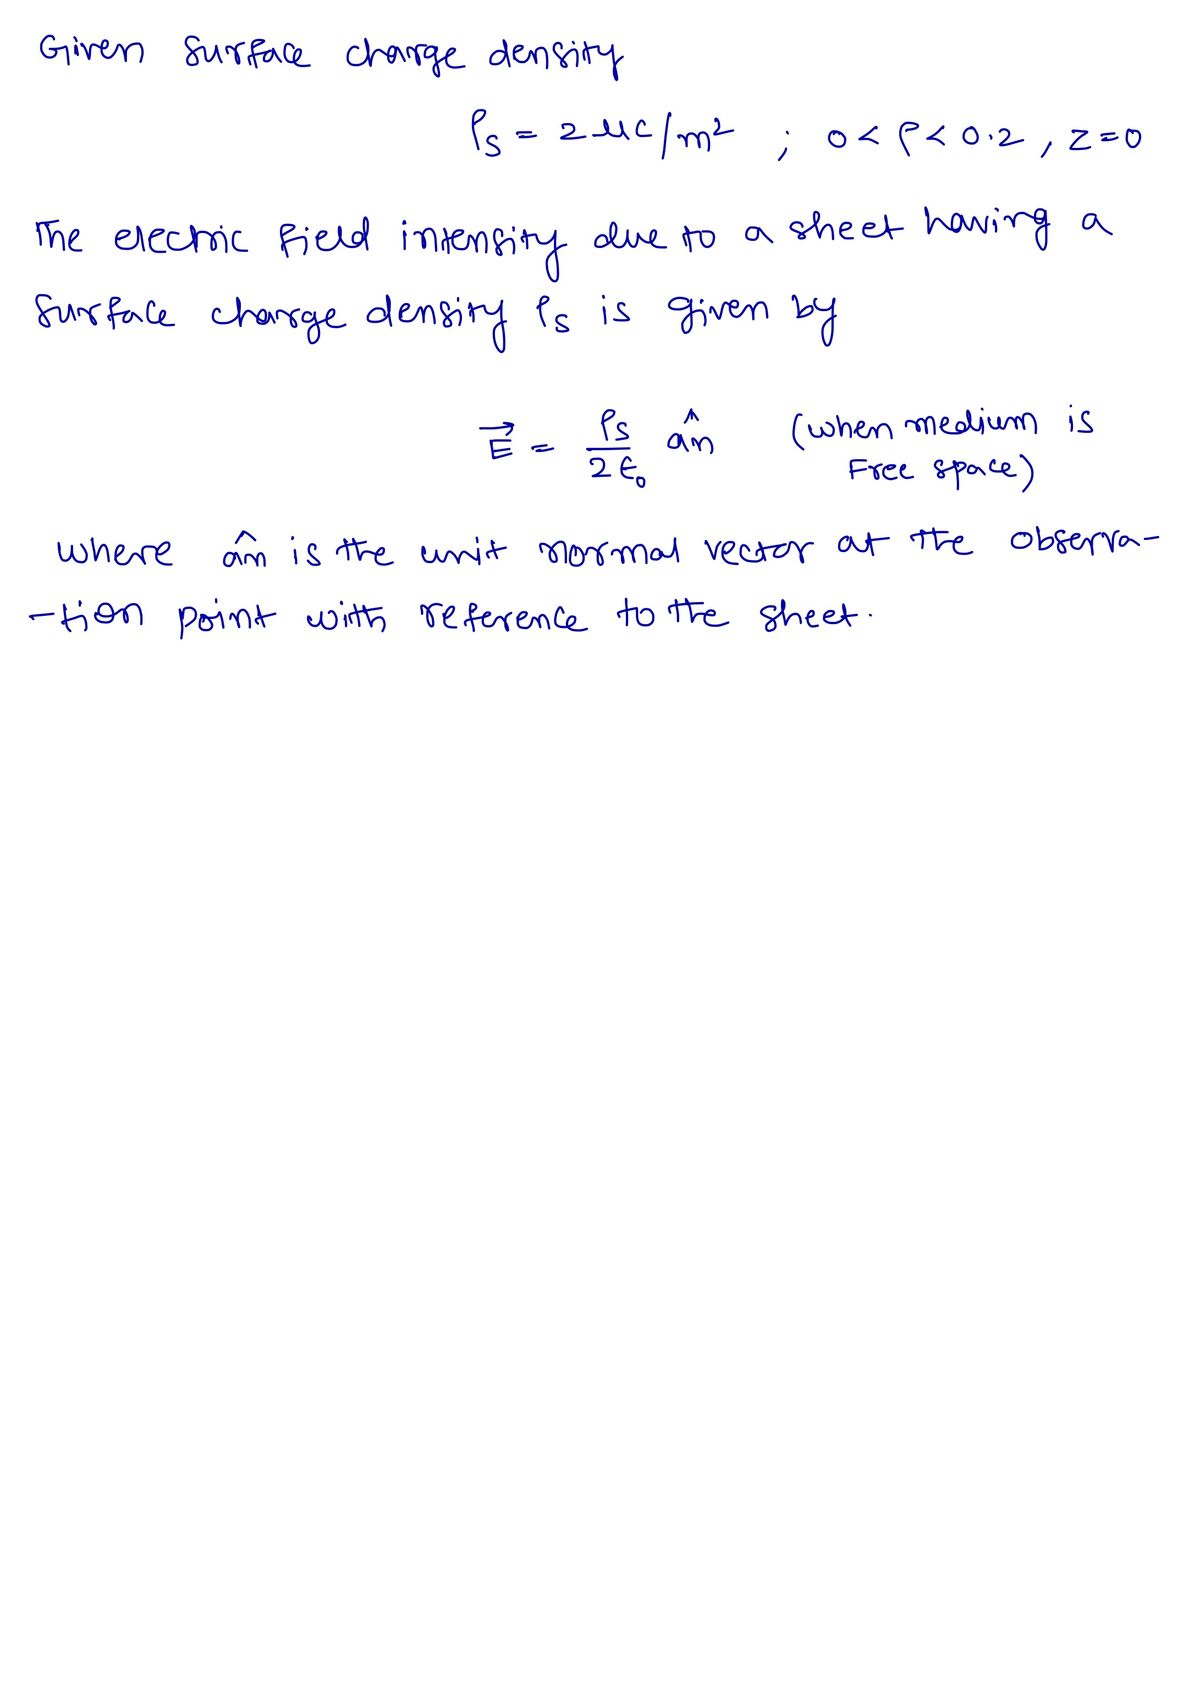 Given surface charge density
ρs = 2 μC/m² ; 0 < ρ < 0.2 , z = 0
The electric field intensity due to a sheet having a
surface charge density ρs is given by
E⃗ = ρs/2ϵ₀ ân (when medium is
Free space)
where ân is the unit normal vector at the observa-
-tion point with reference to the sheet.